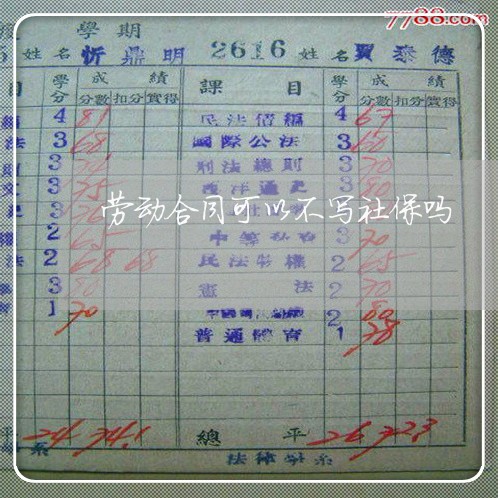 7788.com
學期
姓名 忻鼎明 2616 姓名 賈泰德
目 學分 成績 課目 學分 成績
分數 扣分 實得 分數 扣分 實得
4 81 民法債編 4 67
法 3 68 國際公法 3 60
3 刑法總則 3 70
3 75 西洋通史 3 80
3
劳动合同可以不写社保吗
2 65 3 70
法 2 68 68 民法物權 2 65
3 80 憲法 2 70
1 70 2 80
普通體育 1 78
平 24 74.1 總平 26 72.3
系 法律學系